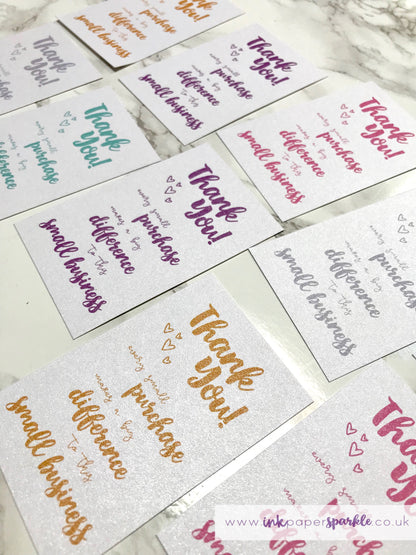 Thank
You!
every small
purchase
makes a big
difference
to this
small business
Thank
You!
every small
purchase
makes a big
difference
to this
small business
Thank
You!
every small
purchase
makes a big
difference
to this
small business
Thank
You!
every small
purchase
makes a big
difference
to this
small business
Thank
You!
every small
purchase
makes a big
difference
to this
small business
Thank
You!
every small
purchase
difference
Thank
You!
every small
purchase
You!
purchase
difference
small business
Thank
You!
every small
purchase
makes a big
difference
small business
www.inkpapersparkle.co.uk